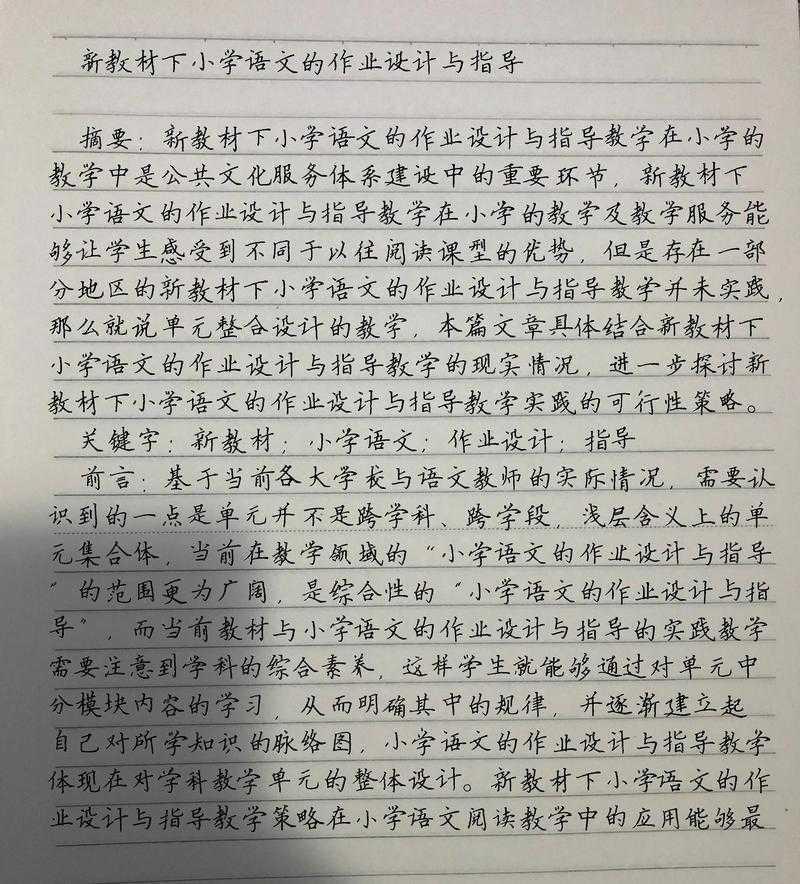 新教材下小学语文的作业设计与指导
摘要：新教材下小学语文的作业设计与指导教学在小学的
教学中是公共文化服务体系建设中的重要环节，新教材下
小学语文的作业设计与指导教学在小学的教学及教学服务能
够让学生感受到不同于以往阅读课型的优势，但是存在一部
分地区的新教材下小学语文的作业设计与指导教学并未实践，
那么就说单元整合设计的教学，本篇文章具体结合新教材下
小学语文的作业设计与指导教学的现实情况，进一步探讨新
教材下小学语文的作业设计与指导教学实践的可行性策略。
关键字：新教材；小学语文；作业设计；指导
前言：基于当前各大学校与语文教师的实际情况，需要认
识到的一点是单元并不是跨学科、跨学段，浅层含义上的单
元集合体，当前在教学领域的“小学语文的作业设计与指导
”的范围更为广阔，是综合性的“小学语文的作业设计与指
导”，而当前教材与小学语文的作业设计与指导的实践教学
需要注意到学科的综合素养，这样学生就能够通过对单元中
分模块内容的学习，从而明确其中的规律，并逐渐建立起
自己对所学知识的脉络图，小学语文的作业设计与指导教学
体现在对学科教学单元的整体设计。新教材下小学语文的作
业设计与指导教学策略在小学语文阅读教学中的应用能够最